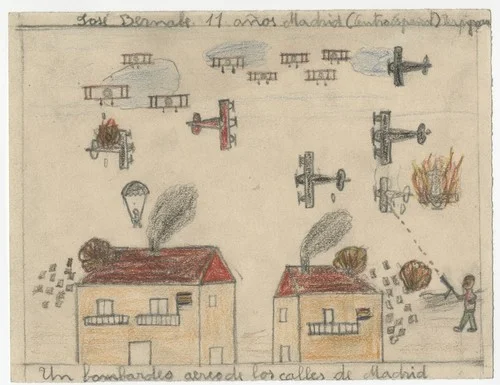 José Bernabe. 11 años Madrid (Centro Español) Perpignan
Un bombardeo aereo de los calles de Madrid